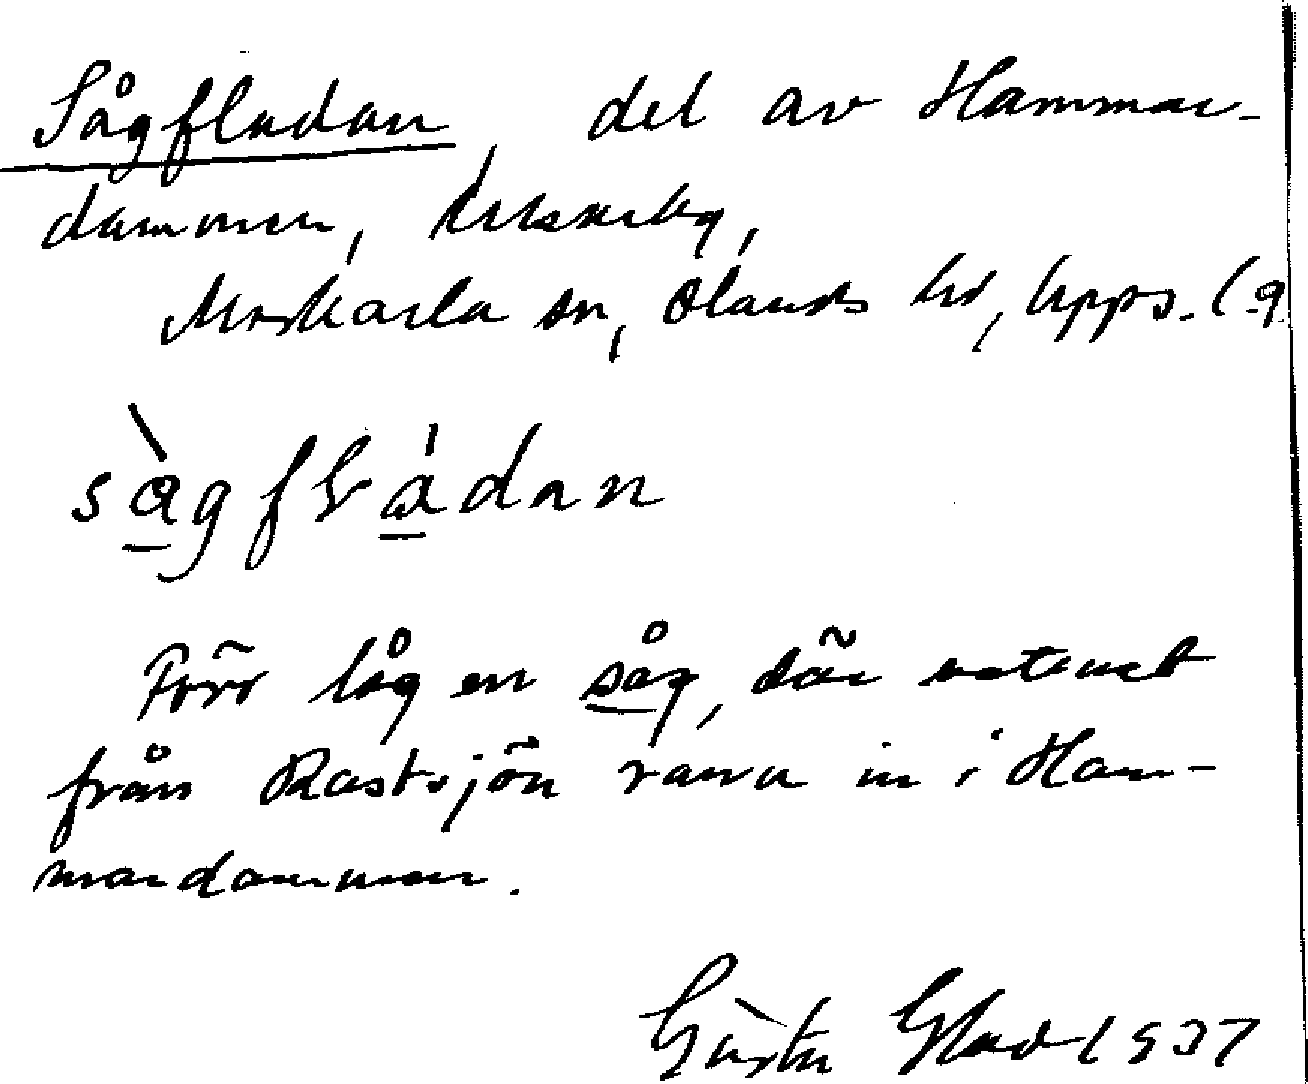 Sågfladan, del av Hammar-
dammen,
Morkarla sn, Olands hd, Upps. l.
sàgfládan
Förr låg en såg, där vattnet
från Rastsjön rann in i Ham-
mardammen.
Gösta Glad 1937